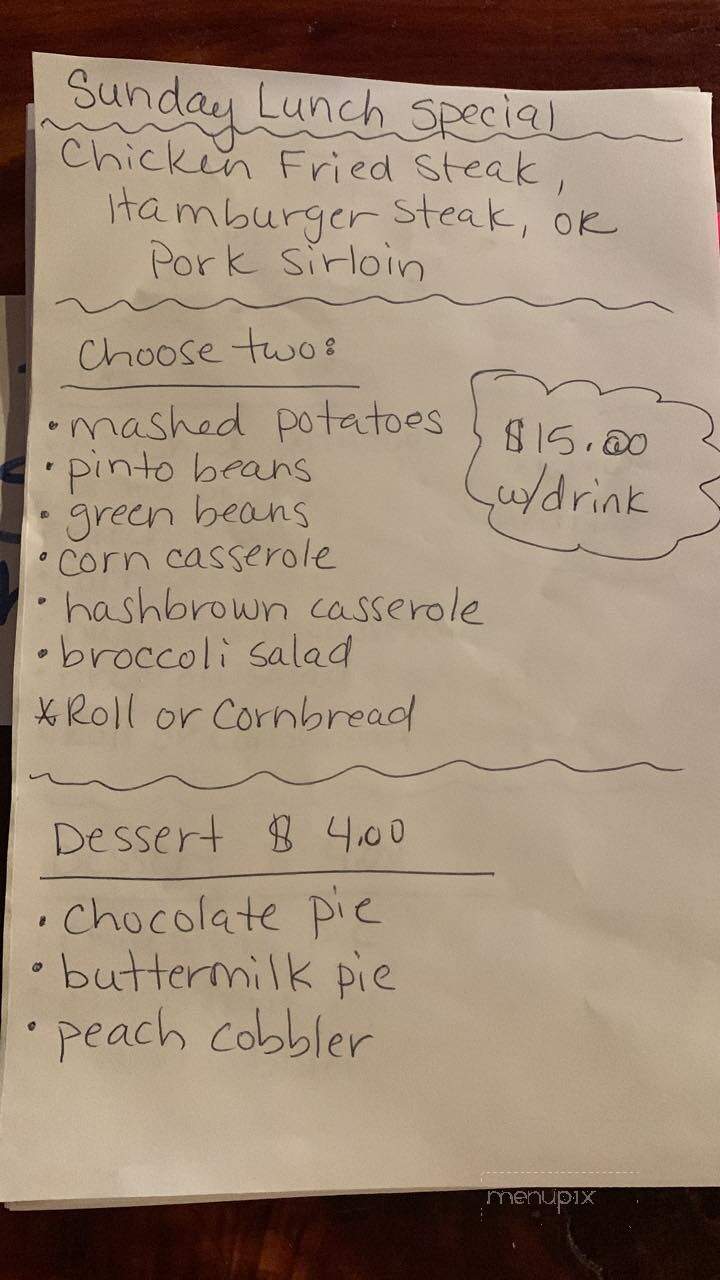 Sunday Lunch Special
Chicken Fried Steak,
Hamburger Steak, OR
Pork Sirloin
Choose two:
• mashed potatoes
• pinto beans
• green beans
• corn casserole
• hashbrown casserole
• broccoli salad
* Roll or Cornbread
$15.00
w/drink
Dessert $ 4.00
• Chocolate pie
• buttermilk pie
• peach cobbler
menupix